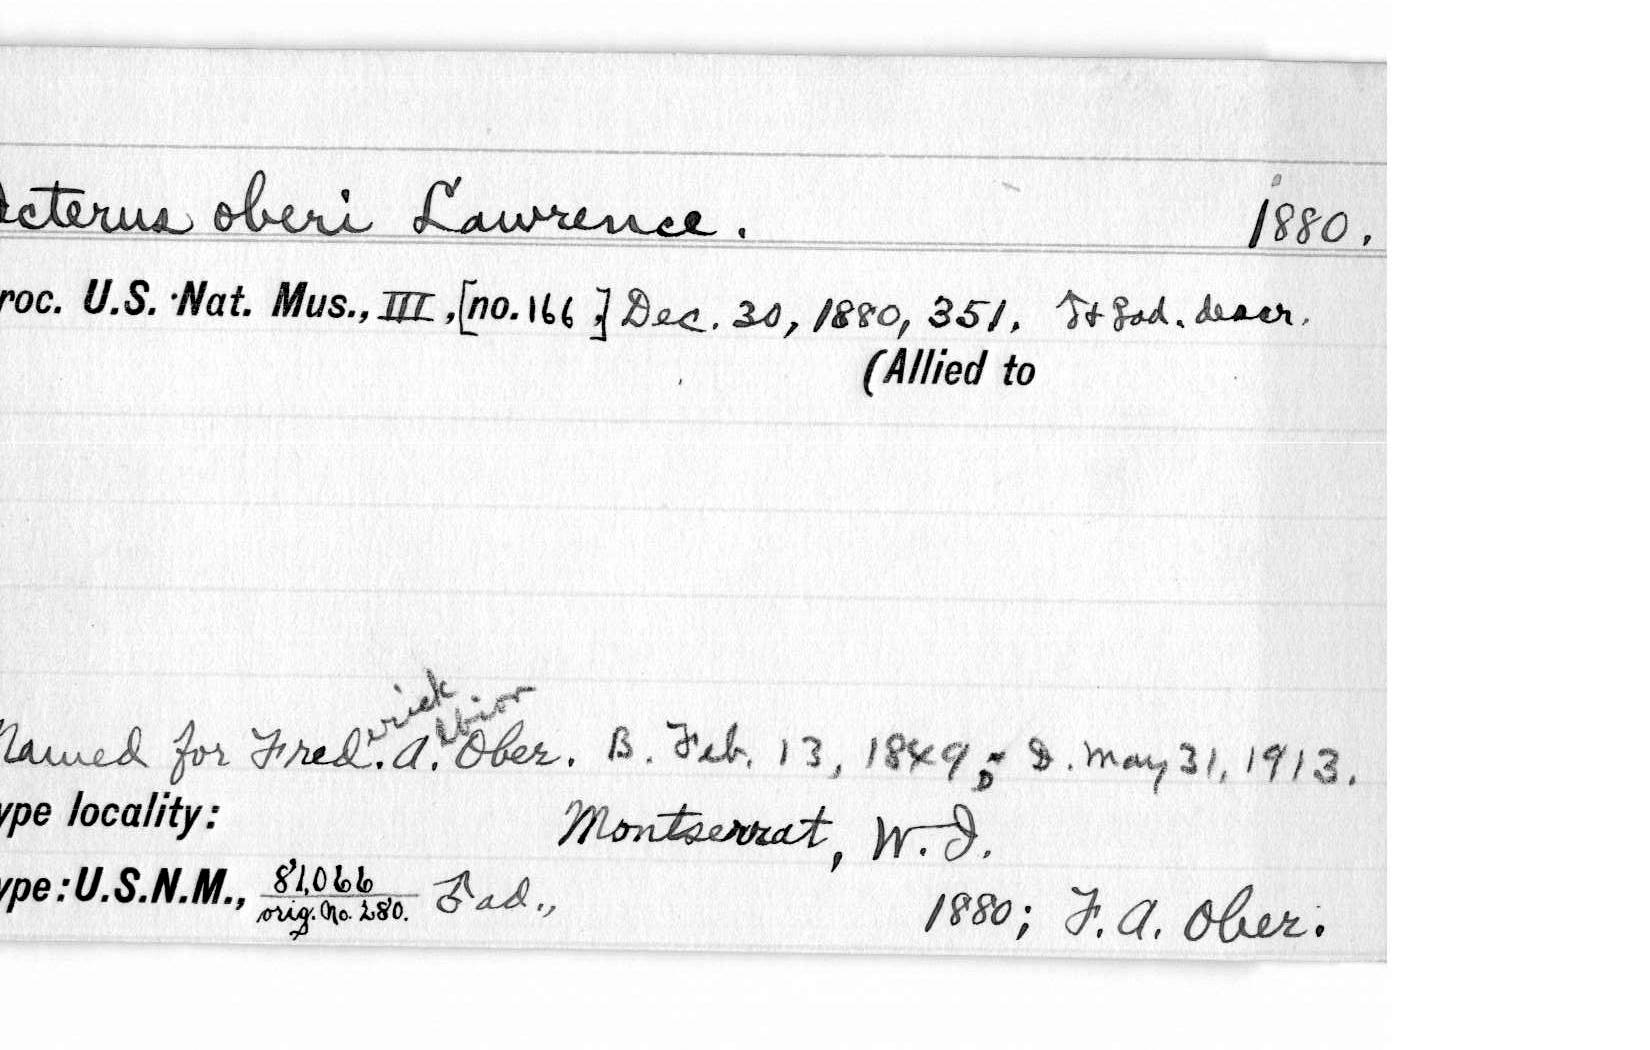 Icterus oberi Lawrence. 1880.
roc. U.S. Nat. Mus., III, [no. 166,] Dec. 30, 1880, 351. ♂ + ♀ ad. descr.
(Allied to
erick Albion
Named for Fred. A. Ober. B. Feb. 13, 1849; D. May 31, 1913.
ype locality: Montserrat, W.I.
ype: U.S.N.M., 81,066 ♂ ad.,
orig. No. 280. 1880; F. A. Ober.